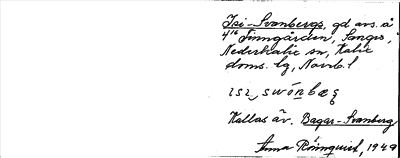 Isi-Svanbergs, gd avs. å
4¹⁶ Finngården, Sangis,
Nederkalix sn, Kalix
doms. lg, Norrb. l
Kallas äv. Bagar-Svanberg
Anna Rönnquist, 1949